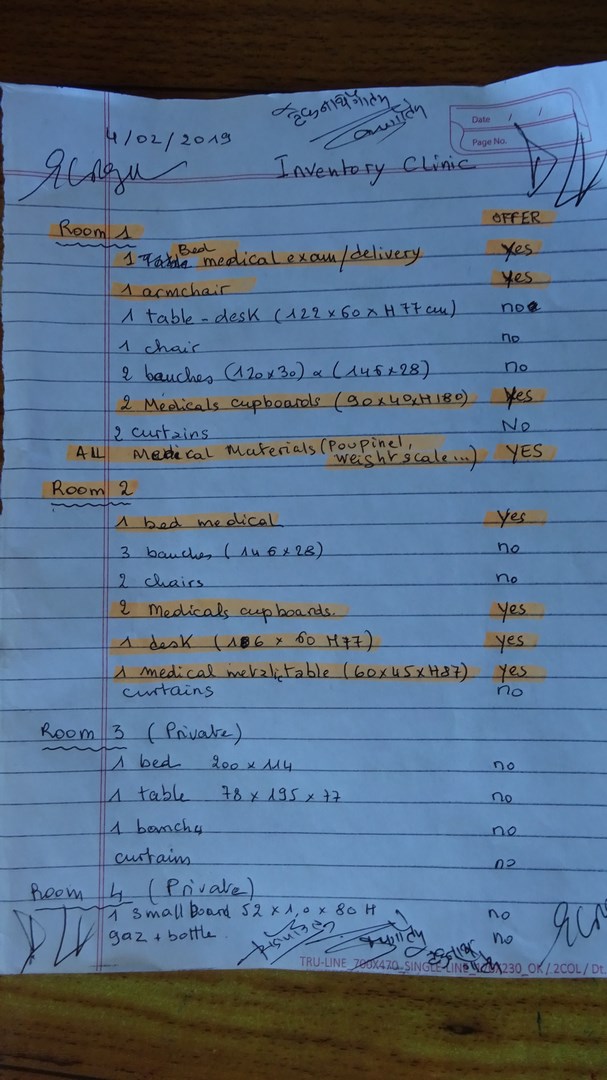 Date / /
Page No.
4/02/2019
Inventory Clinic
Room 1 OFFER
1 Bed medical exam/delivery Yes
1 armchair Yes
1 table-desk (122x60xH77cm) no
1 chair no
2 banches (120x30) (146x28) no
2 Medicals cupboards (90x40xH180) Yes
2 curtains No
ALL Medical Materials (Poupinel, YES
weight scale...)
Room 2
1 bed medical Yes
3 banches (146x28) no
2 chairs no
2 Medicals cupboards. Yes
1 desk ( x 60 H77) yes
1 medical metalic table (60x45xH87) yes
curtains no
Room 3 (Private)
1 bed 200 x 114 no
1 table 78 x 195 x 77 no
1 banch no
curtain no
Room 4 (Private)
1 small board 52 x 1,0 x 80 H no
gaz + bottle no
TRU-LINE_700X470_SINGLE-LINE
230_OK/.2COL/Dt.